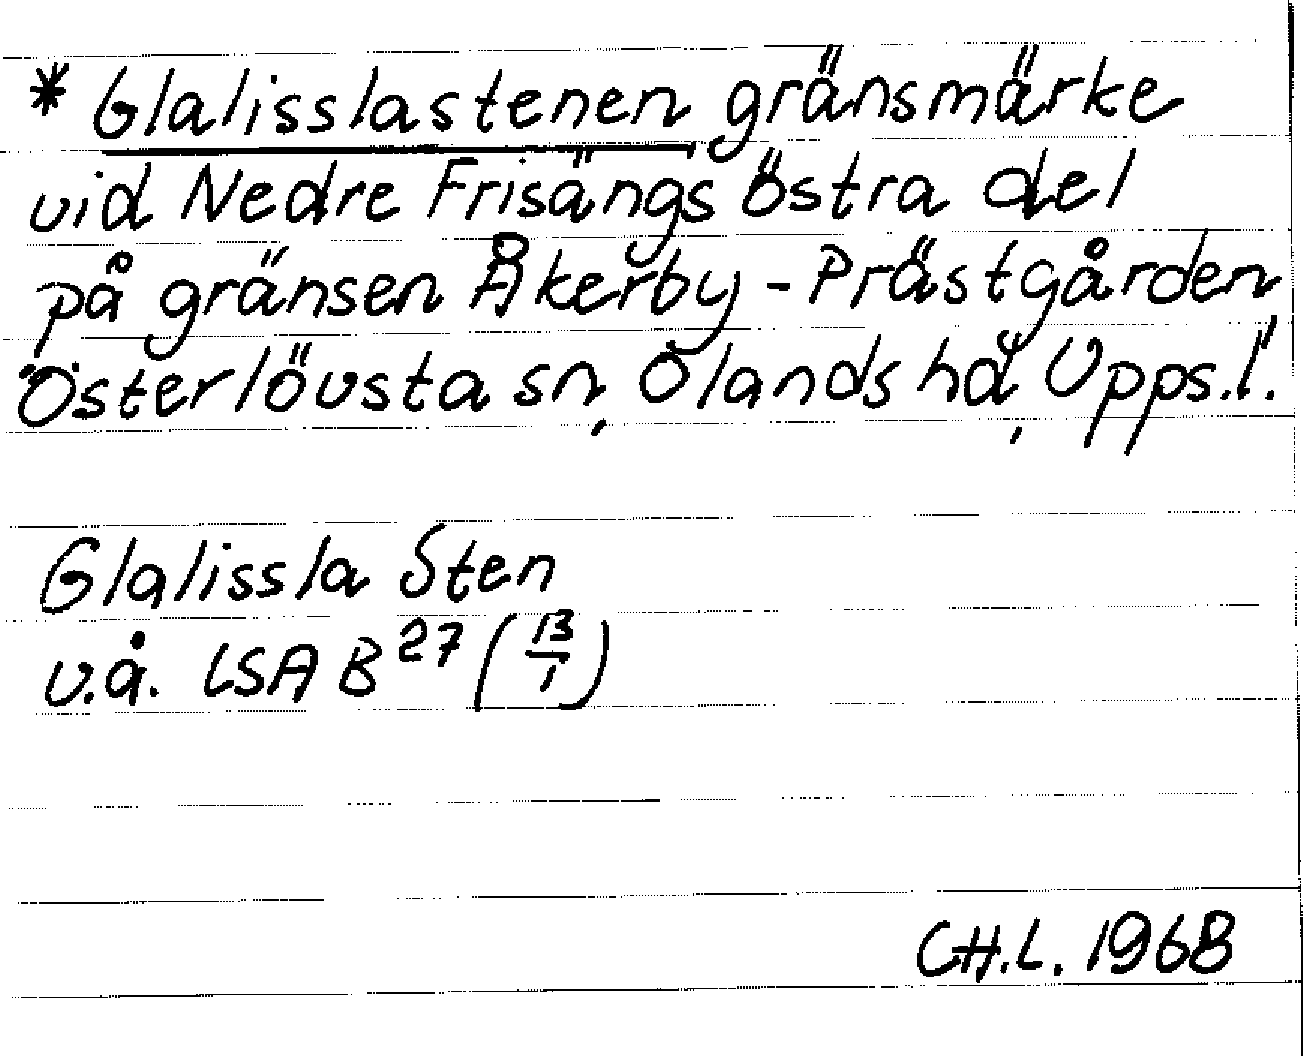 * Glalisslastenen gränsmärke
vid Nedre Frisängs östra del
på gränsen Åkerby - Prästgården
Österlövsta sn, Olands hd, Upps.l.
Glalissla Sten
v.å. LSA B 27 (13/1)
CH.L. 1968